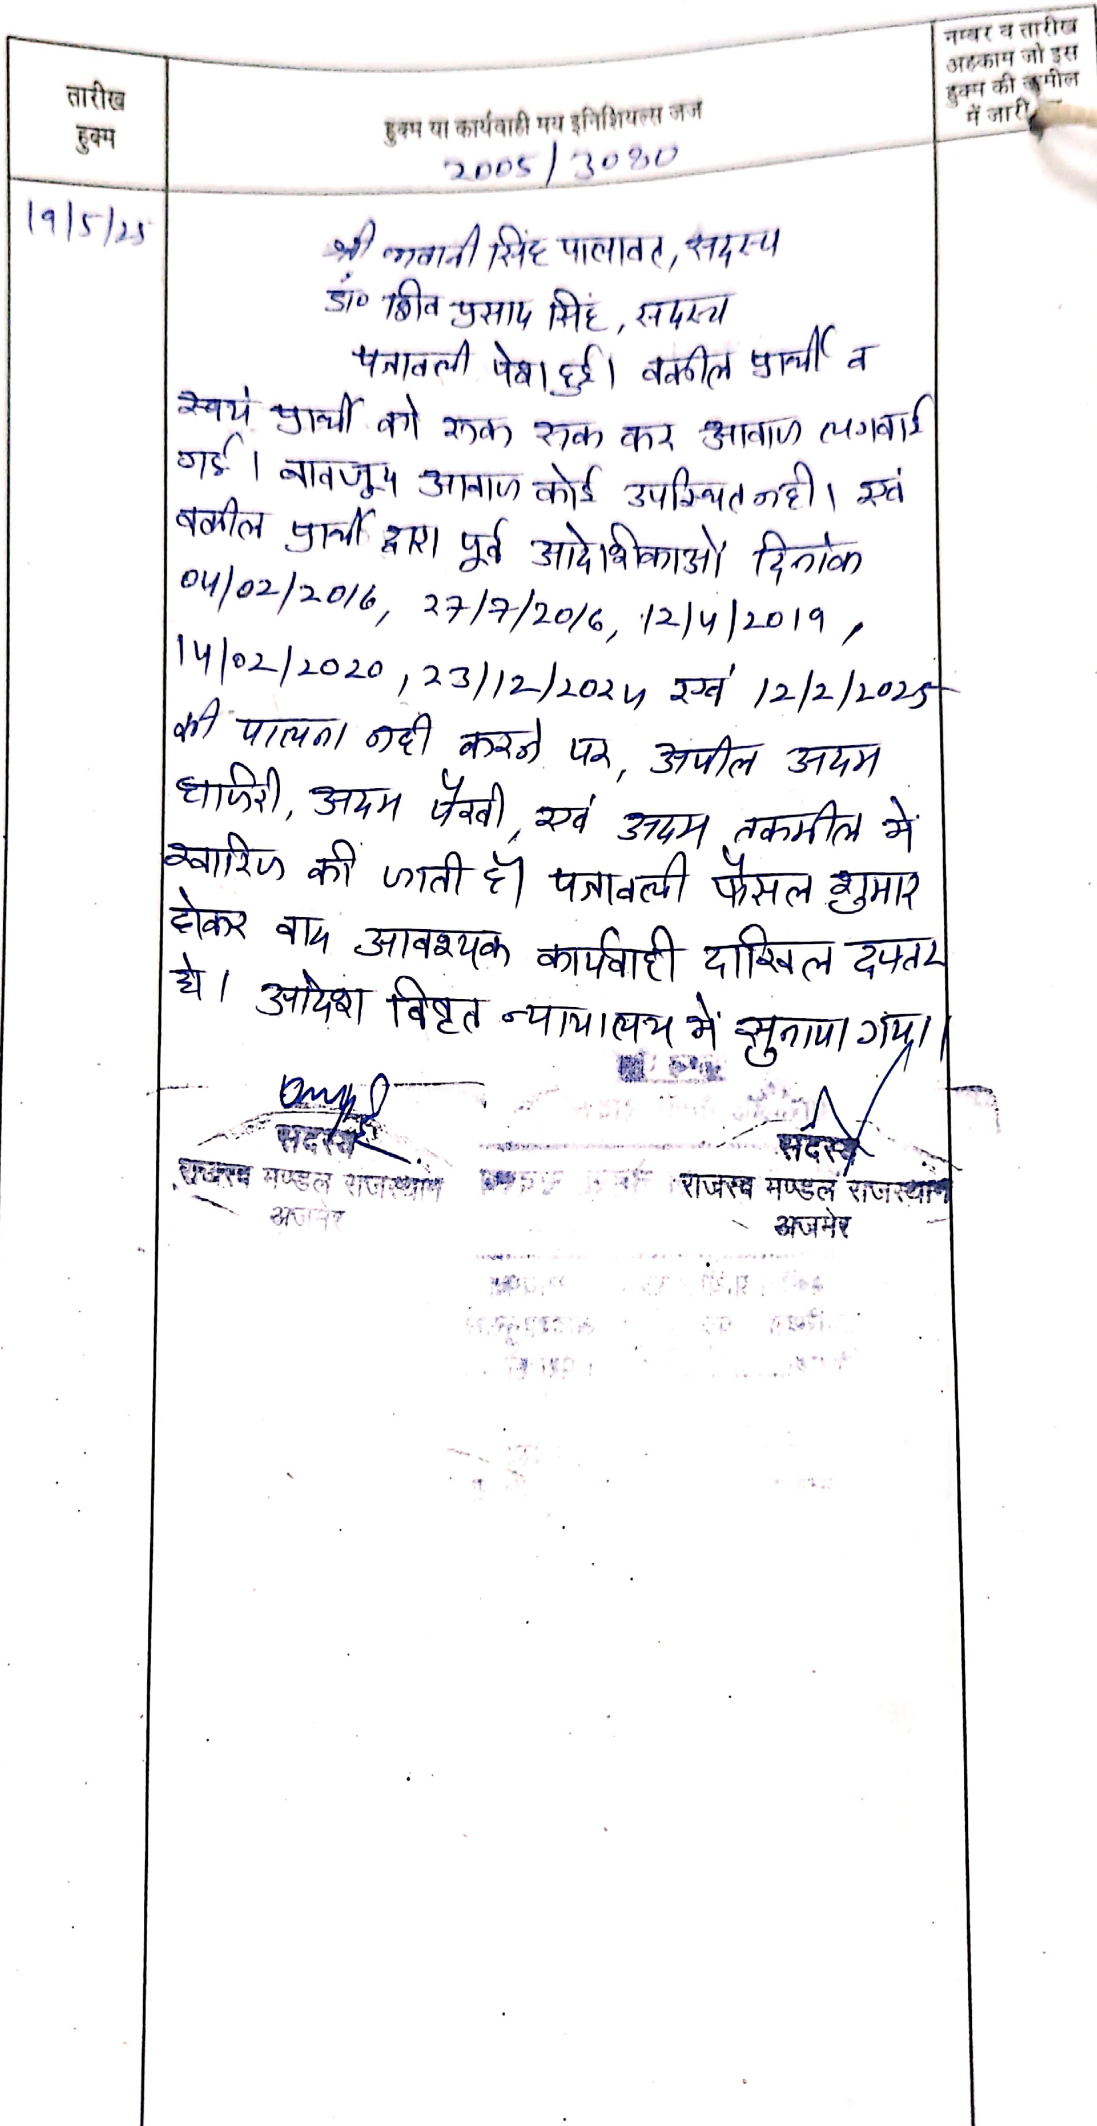 तारीख
हुक्म
हुक्म या कार्यवाही मय इनिशियल्स जज
नम्बर व तारीख
अहकाम जो इस
हुक्म की तामील
में जारी
2005/3080
19/5/25
श्री भवानी सिंह पालावत, सदस्य
डॉ० शिव प्रसाद सिंह, सदस्य
पत्रावली पेश हुई। वकील प्रार्थी व
स्वयं प्रार्थी को रूक रूक कर आवाज लगवाई
गई। बावजूद आवाज कोई उपस्थित नही। एवं
वकील प्रार्थी द्वारा पूर्व आदेशिकाओं दिनांक
04/02/2016, 27/7/2016, 12/4/2019,
14/02/2020, 23/12/2024 एवं 12/2/2025
की पालना नही करने पर, अपील अदम
हाजिरी, अदम पैरवी, एवं अदम तकमील में
खारिज की जाती है। पत्रावली फैसल शुमार
होकर बाद आवश्यक कार्यवाही दाखिल दफ्तर
हो। आदेश विवृत न्यायालय में सुनाया गया।
सदस्य
राजस्व मण्डल राजस्थान
अजमेर
सदस्य
राजस्व मण्डल राजस्थान
अजमेर